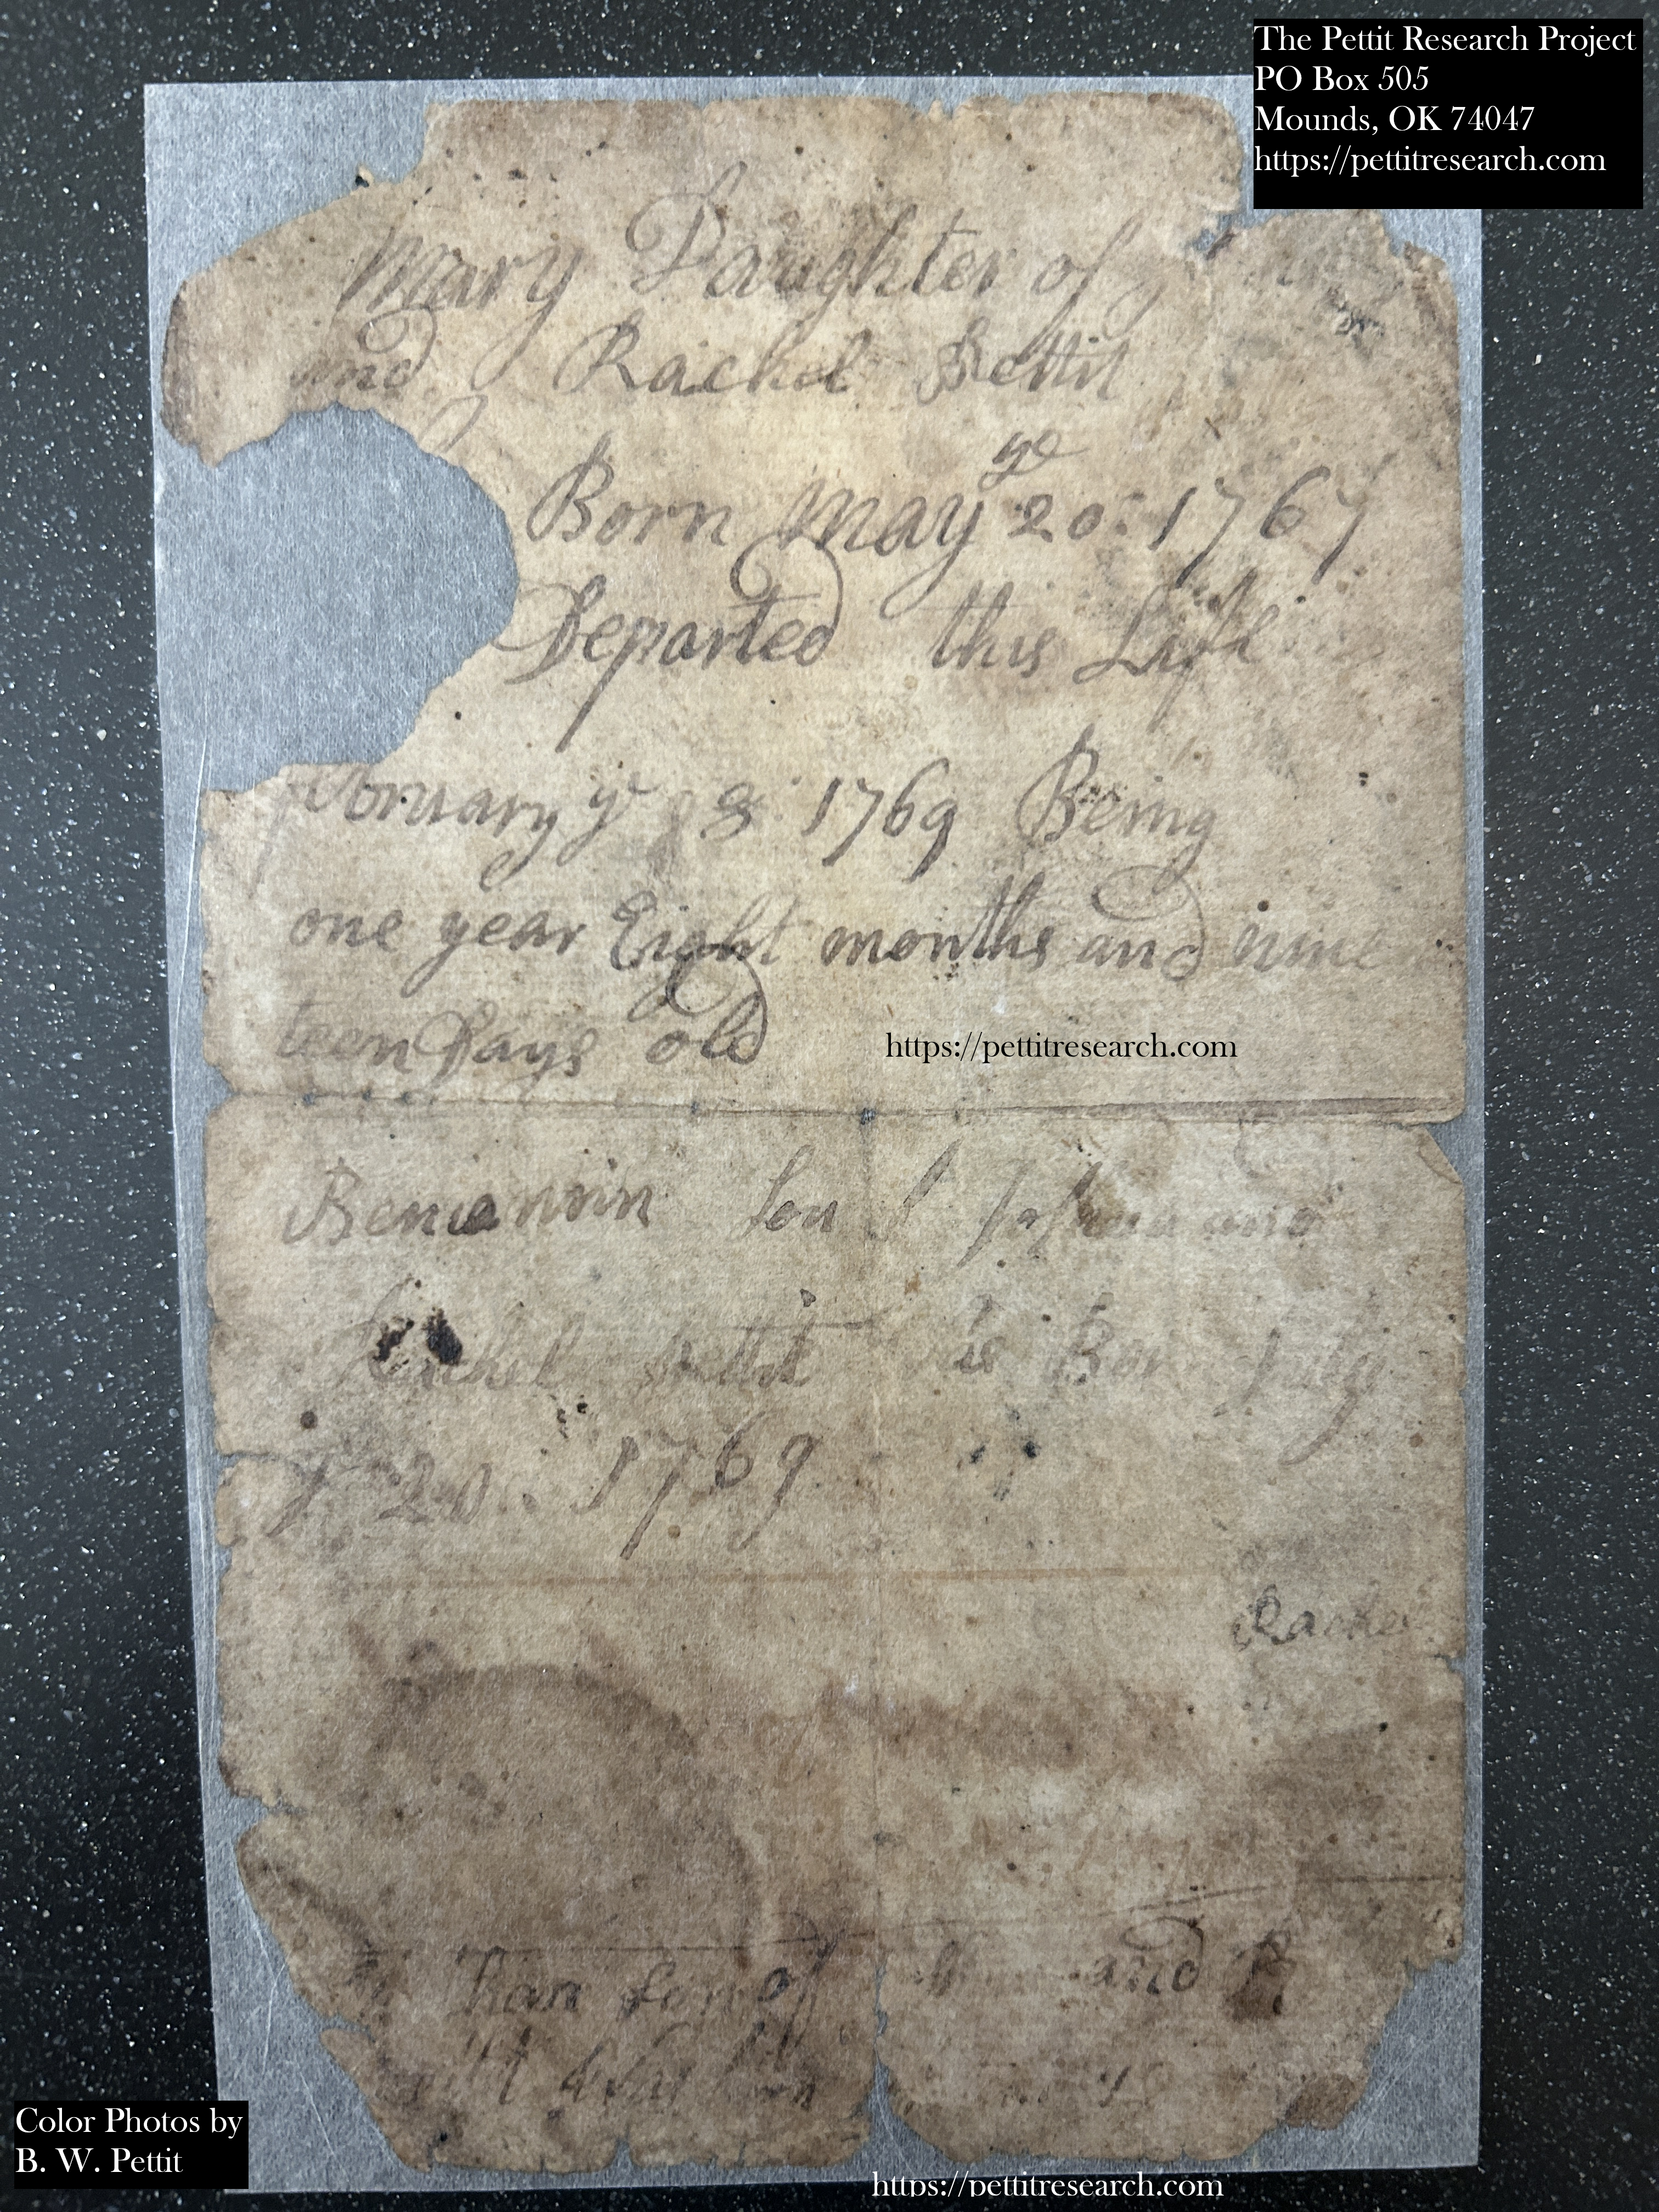 The Pettit Research Project
PO Box 505
Mounds, OK 74047
https://pettitresearch.com
Mary Daughter of
and Rachel Pettit
Born May ye 20: 1767
Departed this Life
February ye 8 1769 Being
one year Eight months and nine
teen Days old
https://pettitresearch.com
Son Joshua and
Rachel Pettit Born July
20. 1769
Rachel
son of and R
was born
Color Photos by
B. W. Pettit
https://pettitresearch.com